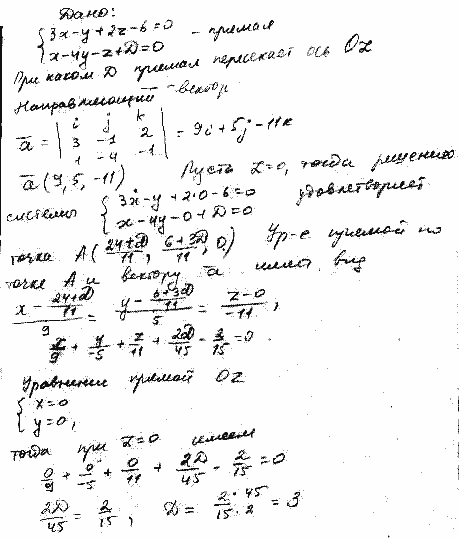 Дано:
{ 3x-y+2z-6=0
{ x-4y-z+D=0 - прямая
При каком D прямая пересекает ось Oz
Направляющий - вектор
ā = | i j k |
| 3 -1 2 | = 9i+5j-11k
| 1 -4 -1 |
ā(9,5,-11) Пусть z=0, тогда решению
системы { 3x-y+2·0-6=0 удовлетворяет
{ x-4y-0+D=0
точка A(24+D/11, 6+3D/11, 0) Ур-е прямой по
точке A и вектору ā имеет вид
(x - 24+D/11)/9 = (y - 6+3D/11)/5 = (z-0)/-11,
x/9 + y/-5 + z/11 + 2D/45 - 2/15 = 0.
Уравнение прямой OZ
{ x=0
{ y=0,
тогда при z=0 имеем
0/9 + 0/-5 + 0/11 + 2D/45 - 2/15 = 0
2D/45 = 2/15, D = 2·45/15·2 = 3